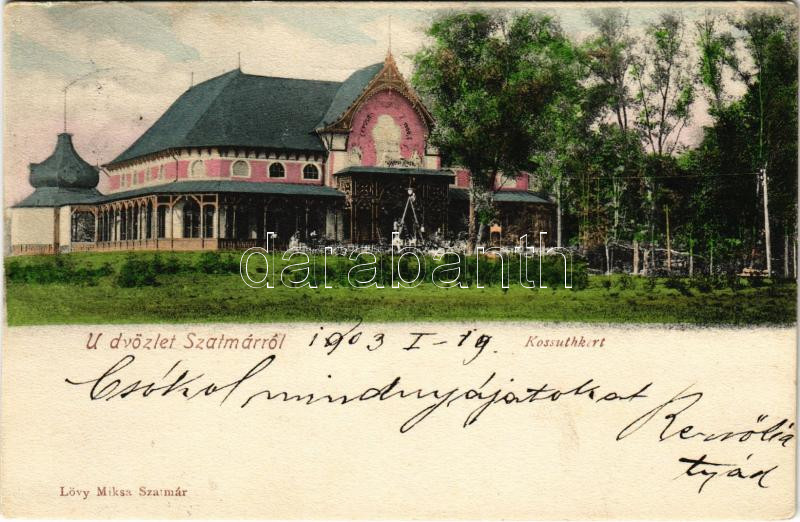 darabanth
Udvözlet Szatmárról 1903 I-19. Kossuthkert
Csókol mindnyájatokat
tyád
Lövy Miksa Szatmár